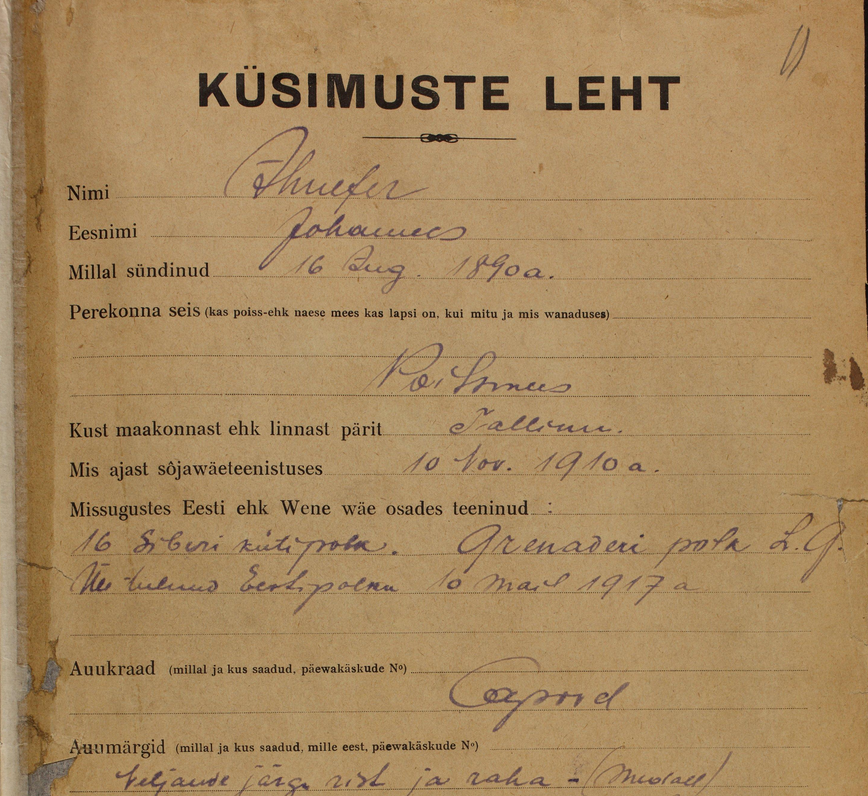 KÜSIMUSTE LEHT
Nimi
Eesnimi Johannes
Millal sündinud 16 Aug. 1890 a.
Perekonna seis (kas poiss-ehk naese mees kas lapsi on, kui mitu ja mis wanaduses)
Poissmees
Kust maakonnast ehk linnast pärit Tallinn.
Mis ajast sôjawäeteenistuses 10 Nov. 1910 a.
Missugustes Eesti ehk Wene wäe osades teeninud :
16 Siberi kütipolk. Grenaderi polk L. G.
tulnud Eestipolku 10 mail 1917 a
Auukraad (millal ja kus saadud, päewakäskude Nº)
Auumärgid (millal ja kus saadud, mille eest, päewakäskude Nº)
Neljanda järgu rist ja raha - (Medall)